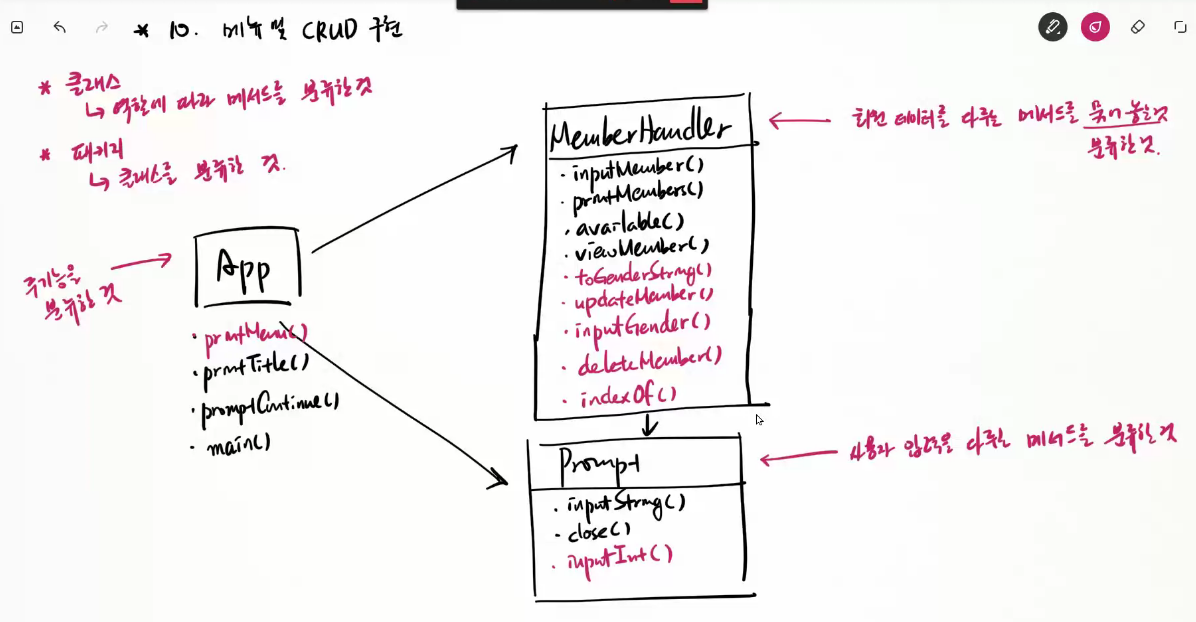 * 10. 메뉴 및 CRUD 구현
* 클래스
↳ 역할에 따라 메서드를 분류한 것
* 패키지
↳ 클래스를 분류한 것.
주기능을
분류한 것
App
· printMenu()
· printTitle()
· promptContinue()
· main()
MemberHandler
· inputMember()
· printMembers()
· available()
· viewMember()
· toGenderString()
· updateMember()
· inputGender()
· deleteMember()
· indexOf()
회원 데이터를 다루는 메서드를 묶어 놓은것
분류한 것.
Prompt
· inputString()
· close()
· inputInt()
사용자 입력을 다루는 메서드를 분류한 것